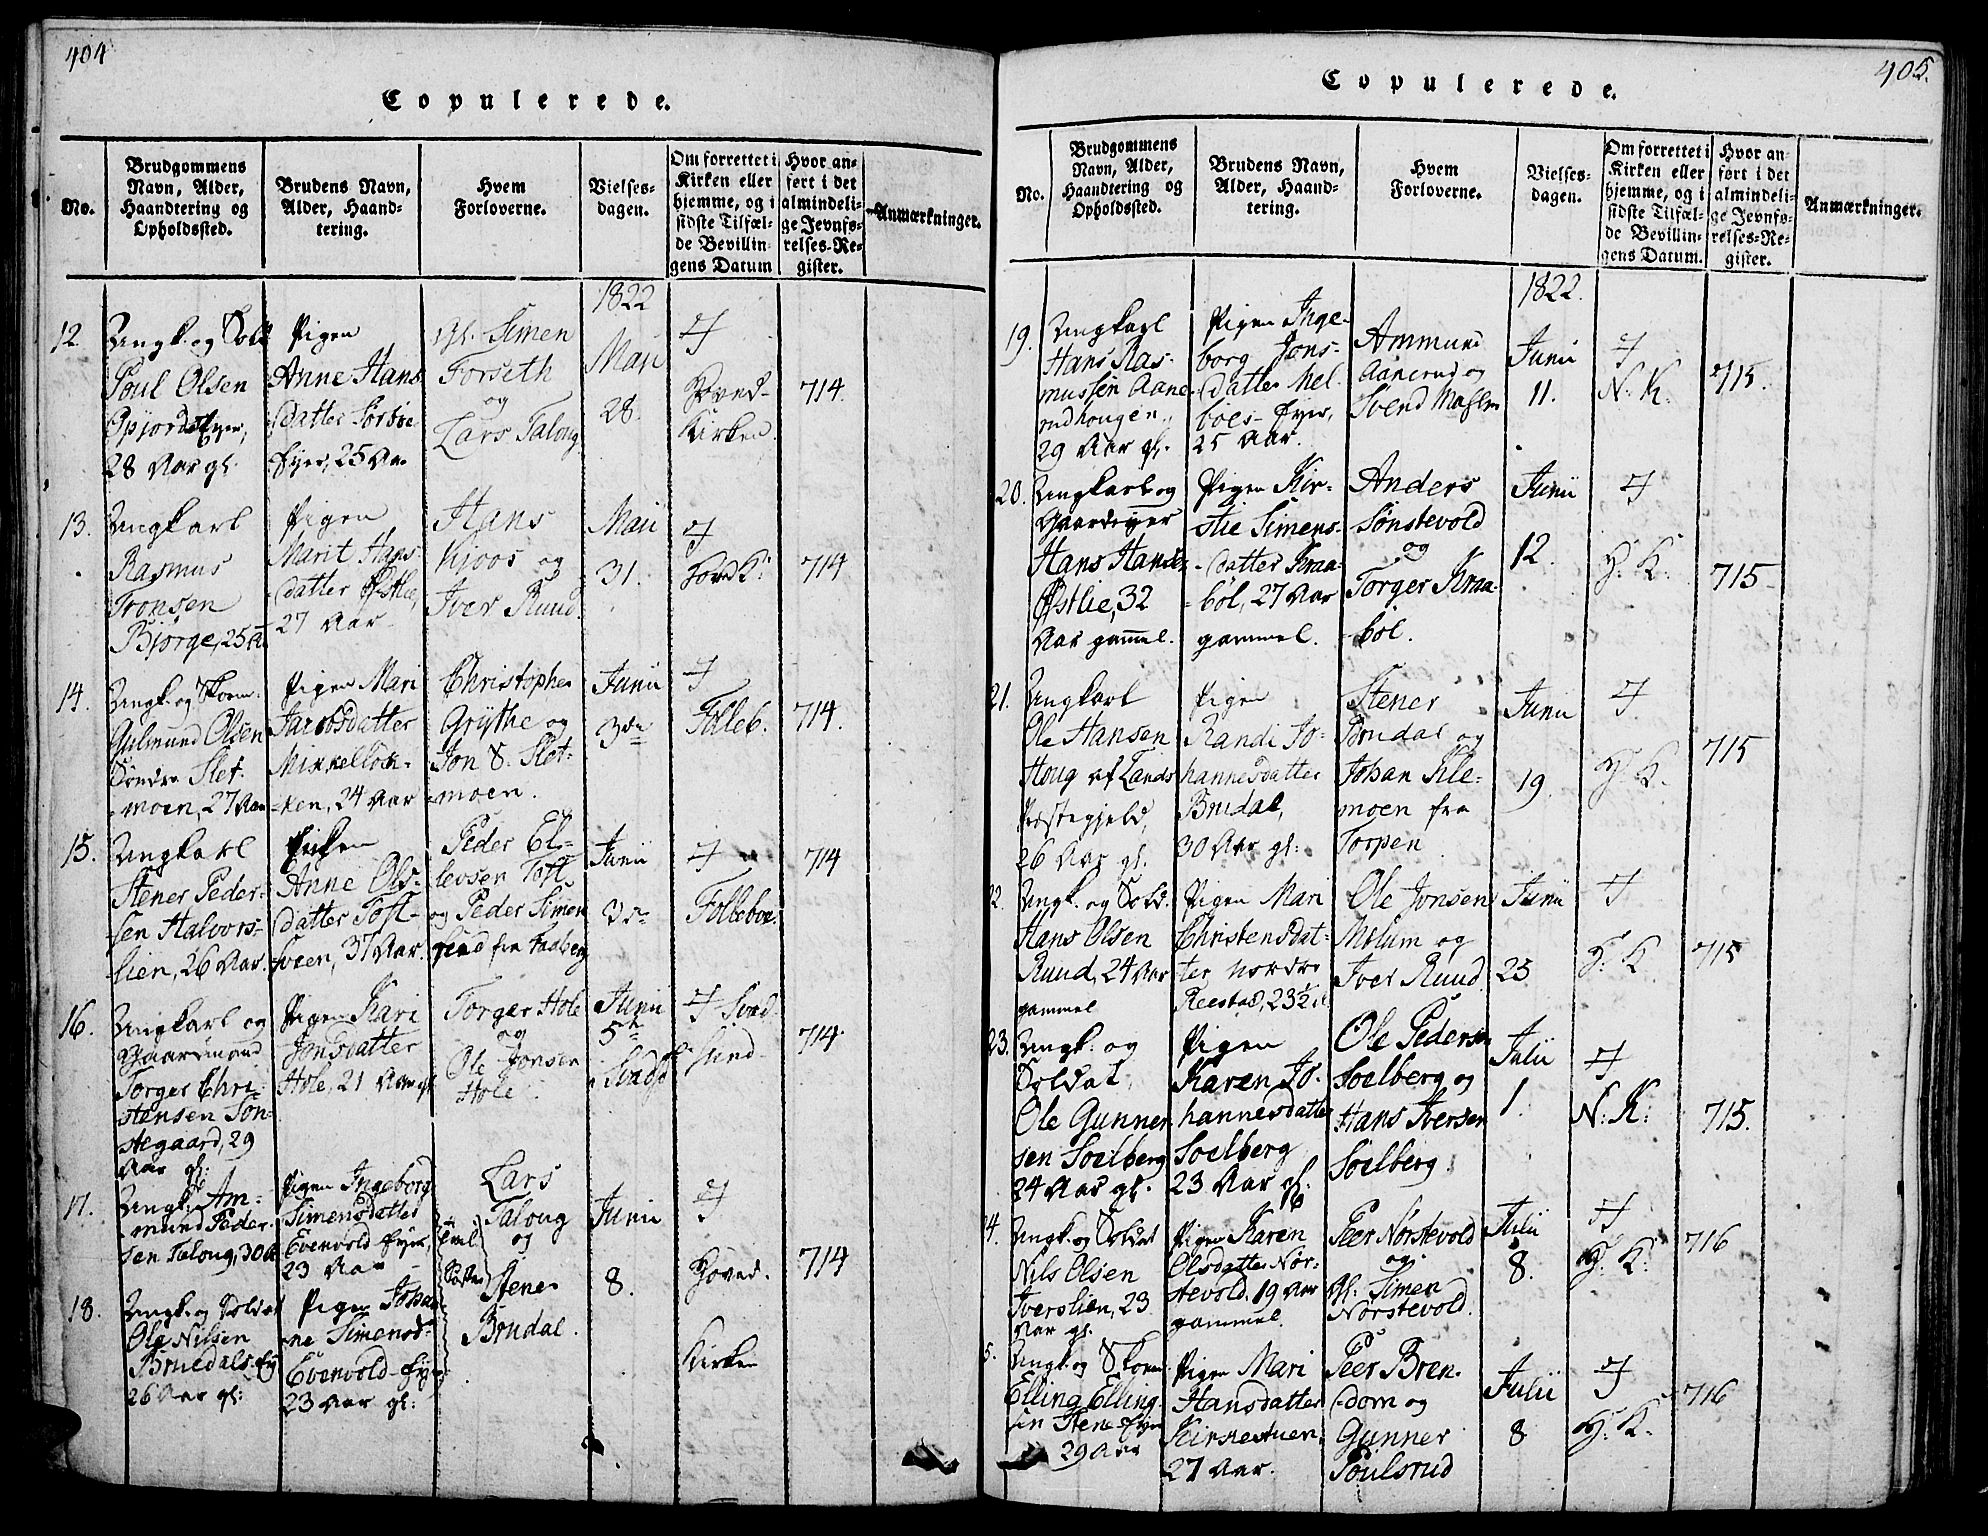 404
Copulerede.
No.
Brudgommens Navn, Alder, Haandtering og Opholdssted.
Brudens Navn, Alder, Haandtering.
Hvem Forloverne.
Vielsesdagen.
Om forrettet i Kirken eller hjemme, og i sidste Tilfælde Bevillingens Datum
Hvor anført i det almindelige Jevnførelses-Register.
Anmærkninger.
1822
12.
Ungk. og Sold
Poul Olsen
28 Aar gl.
Pigen
Anne Hans
datter
Eyer, 25 Aar
Gl. Simen
Forseth
og
Lars Talong
Maji
28.
I
Hoved-
Kirken.
714.
13.
Ungkarl
Rasmus
Tronsen
Bjørge, 25 A
Pigen
Marit Hans-
datter Østlie,
27 Aar
Hans
Kjoos og
Iver Ruud.
Maii
31.
I
Hoved K:
714
14.
Ungk. og
Gulmund Olsen
Søndre Slet-
moen, 27 Aar
Pigen Mari
Jacobsdatter
Mikkelløk-
ken, 24 Aar
Christopher
Grÿthe og
Jon S. Slet-
moen.
Junii
3de
I
Folleb.
714.
15.
Ungkarl
Stener Peder-
sen Halvors-
lien, 26 Aar.
Pigen
Anne Ols-
datter Toft-
sveen, 37 Aar.
Peder El-
levsen Toft
og Peder Simen
fra Faaberg
Junii
3de
I
Folleboe.
714
16.
Ungkarl og
Gaardmand
Torger Chri-
stensen Søn-
stegaard, 29
Aar gl:
Pigen Kari
Jonsdatter
Hole, 21 Aar gl
Torger Hole
og
Ole Jonsen
Hole.
Junii
5te
I Svad-
sund.
714.
17.
Ungk. Am-
mund Peder-
sen Talong, 30 A
Pigen Ingeborg
Simensdatter
Evenvold-Eyer,
23 Aar
Lars
Talong
og
Stener
Brudal.
Junii
8.
I
Hoved-
Kirken
714
18.
Ungk. og Soldat
Ole Nilsen
Bruedals-Ey
26 Aar gl:
Pigen Johan
ne Simensd-
Evenvold-Eyer
23 Aar gl:
Søstre
405.
Copulerede.
No.
Brudgommens Navn, Alder, Haandtering og Opholdssted.
Brudens Navn, Alder, Haandtering.
Hvem Forloverne.
Vielsesdagen.
Om forrettet i Kirken eller hjemme, og i sidste Tilfælde Bevillingens Datum.
Hvor anført i det almindelige Jevnførelses-Register.
Anmærkninger.
1822.
19.
Ungkarl
Hans Ras-
mussen Aane
rudhougen,
29 Aar gl.
Pigen Inge-
borg Jons-
datter Mel-
boes-Eyer,
25 Aar.
Ammund
Aanerud og
Svend
Junii
11.
I
N: K:
715.
20.
Ungkarl og
Gaardeyer
Hans Hansen
Østlie, 32
Aar gammel.
Pigen Kir-
stie Simens-
datter Kraa-
bøl, 27 Aar
gammel.
Anders
Sønstevold
og
Torger Kraa-
bøl.
Junii
12.
I
H: K:
715
21.
Ungkarl
Ole Hansen
Houg af Lands
Præstegjeld,
26 Aar gl.
Pigen
Randi Jo-
hannesdatter
Brudal,
30 Aar gl:
Stener
Brudal og
Johan Kle-
moen fra
Torpen
Junii
19.
I
H: K.
715
2.
Ungk. og Sold.
Hans Olsen
Ruud, 24 Aar
gammel
Pigen Mari
Christensdat-
ter Nordre
Reestad, 23½
Ole Jonsen
Molum og
Iver Ruud
Junii
25
I
H: K
715
23.
Ungk: og
Soldat
Ole Gunner-
sen Soelberg
24 Aar gl.
Pigen
Karen Jo-
hannesdatter
Soelberg
23 Aar gl:
Ole Pedersen
Soelberg og
Hans Iversen
Soelberg:
Julii
1.
I
N: K:
715.
4.
Ungk. og Soldat
Nils Olsen
Iverslien, 23
Aar gl.
Pigen Karen
Olsdatter Nør-
stevold, 19 Aar
gammel.
Peer Nørstevold
og
Gl: Simen
Nørstevold.
Julii
8.
I
H: K:
716
5.
Ungk. og
Elling Elling-
sen
29 Aar
Pigen Mari
Hansdatter
Kirkestuen,
27 Aar.
Peer Bren-
dom og
Gunner
Poulsrud
Julii
8
I
H: K.
716